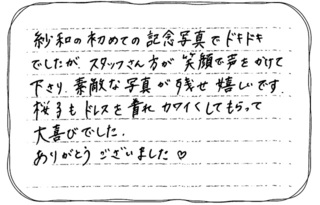 紗和の初めての記念写真でドキドキ
でしたが、スタッフさん方が笑顔で声をかけて
下さり、素敵な写真が残せ嬉しいです。
桜子もドレスを着れカワイくしてもらって
大喜びでした.
ありがとうございました♡